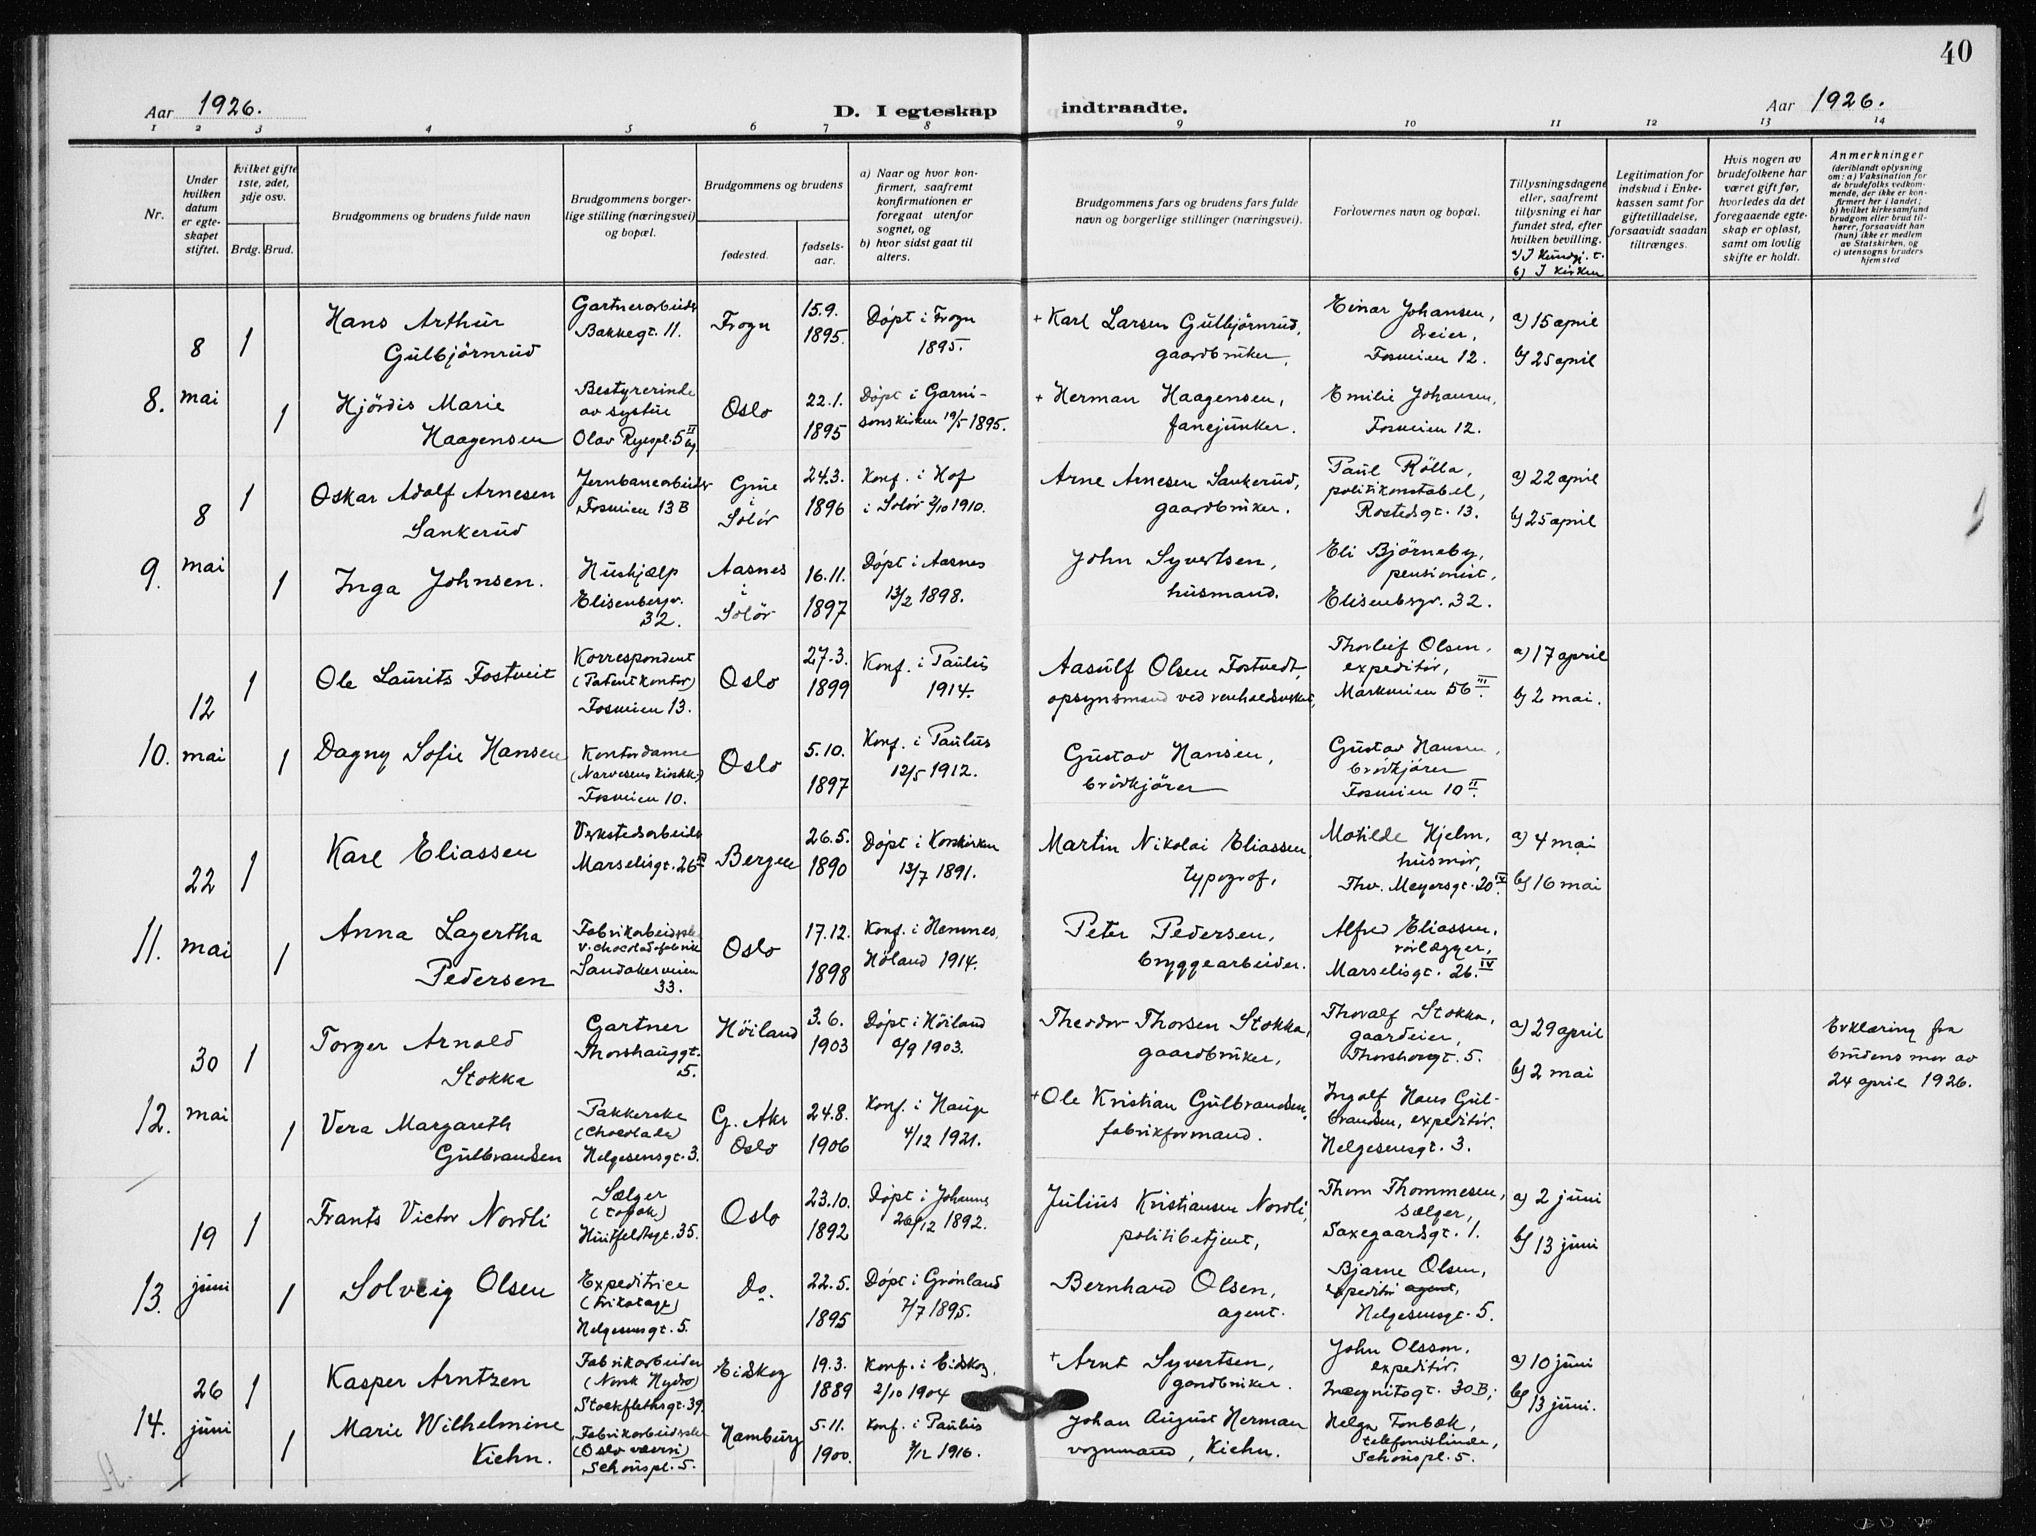 40
Aar 1926.
D. I egteskap indtraadte.
Aar 1926.
1 2 3 4 5 6 7 8 9 10 11 12 13 14
Nr.
Under hvilken datum er egteskapet stiftet.
Hvilket gifte 1ste, 2det, 3dje osv.
Brdg. Brud.
Brudgommens og brudens fulde navn
Brudgommens borgerlige stilling (næringsvei) og bopæl.
Brudgommens og brudens
fødested.
fødselsaar.
a) Naar og hvor konfirmert, saafremt konfirmationen er foregaat utenfor sognet, og
b) hvor sidst gaat til alters.
Brudgommens fars og brudens fars fulde navn og borgerlige stillinger (næringsvei).
Forlovernes navn og bopæl.
Tillysningsdagene eller, saafremt tillysning ei har fundet sted, efter hvilken bevilling.
a) I Kundgj. t.
b) I kirken
Legitimation for indskud i Enkekassen samt for giftetilladelse, forsaavidt saadan tiltrænges.
Hvis nogen av brudefolkene har været gift før, hvorledes da det foregaaende egteskap er opløst, samt om lovlig skifte er holdt.
Anmerkninger (deriblandt oplysning om: a) Vaksination for de brudefolks vedkommende, der ikke er konfirmert her i landet; b) hvilket kirkesamfund brudgom eller brud tilhører, forsaavidt han (hun) ikke er medlem av Statskirken, og c) utensogns bruders hjemsted
8. 8 mai
1 Hans Arthur Gulbjörnrud
Gartnerarbeider Bakkegt. 11.
Frogn
15.9. 1895.
Döpt i Frogn 1895.
+ Karl Larsen Gulbjörnrud, gaardbruker.
Einar Johansen, dreier, Fosveien 12.
a) 15 april
b) 25 april
1 Hjördis Marie Haagensen
Bestyrerinde av systue Olav Ryespl. 5 II
Oslo
22.1. 1895
Döpt i Garnisonskirken 19/5 1895.
+ Herman Haagensen, fanejunker.
Emilie Johansen, Fosveien 12.
9. 8 mai
1 Oskar Adolf Arnesen Sankerud
Jernbanearbeider Fosveien 13 B
Grue i Solör
24.3. 1896
Konf. i Hof i Solör 2/10 1910.
Arne Arnesen Sankerud, gaardbruker.
Paul Rölla, politikonstabel, Rostedsgt. 13.
a) 22 april
b) 25 april
1 Inga Johnsen.
Hushjælp Elisenbergv. 32.
Aasnes i Solör
16.11. 1897
Döpt i Aasnes 13/2 1898.
John Syvertsen, husmand.
Eli Björneby, pensionist, Elisenbgv. 32.
10. 12 mai
1 Ole Laurits Fostveit
Korrespondent (Patentkontor) Fosveien 13.
Oslo
27.3. 1899
Konf. i Paulus 1914.
Aasulf Olsen Fostvedt, opsynsmand ved renholdsverket,
Thorleif Olsen, expeditör, Markveien 56 III.
a) 17 april
b) 2 mai.
1 Dagny Sofie Hansen
Kontordame (Narvesens kioskk.) Fosveien 10.
Oslo
5.10. 1897
Konf. i Paulus 12/5 1912.
Gustav Hansen, brödkjörer
Gustav Hansen, brödkjörer Fosveien 10 II.
11. 22 mai
1 Karl Eliassen
Verkstedsarbeider Marselisgt. 26 IV
Bergen
26.5. 1890
Döpt i Korskirken 13/7 1891.
Martin Nikolai Eliassen, typograf,
Matilde Hjelm, husmor, Thv. Meyersgt. 20 IV.
a) 4 mai
b) 16 mai
1 Anna Lagertha Pedersen
Fabrikarbeiderske v. chocoladefabrik Sandakerveien 33.
Oslo
17.12. 1898
Konf. i Hemnes, Höland 1914.
Peter Pedersen, bryggearbeider.
Alfred Eliassen, rörlægger, Marselisgt. 26. IV
12. 30 mai
1 Torger Arnold Stokka
Gartner Thorshauggt. 5.
Höiland
3.6. 1903
Döpt i Höiland 1903.
Theodor Thorsen Stokka, gaardbruker,
Thoralf Stokka, gaardeier, Thorshovgt. 5.
a) 29 april
b) 2 mai
Erklæring fra brudens mor av 24 april 1926.
1 Vera Margareth Gulbrandsen
Pakkerske (Chocolade) Helgesensgt. 3.
G. Aker Oslo
24.8. 1906
Konf. i Hauge 4/12 1921.
+ Ole Kristian Gulbrandsen, fabrikformand.
Ingolf Hans Gulbrandsen, expeditör. Helgesensgt. 3.
13. 19 juni
1 Frants Victor Nordli
Sælger (tobak) Huitfeldtsgt. 35.
Oslo
23.10. 1892
Döpt i Johannes 26/12 1892.
Julius Kristiansen Nordli, politibetjent,
Thom Thommesen, sælger, Saxegaardsgt. 1.
a) 2 juni
b) 13 juni
1 Solveig Olsen
Expeditrice (trikotage) Helgesensgt. 5.
Do.
22.5. 1895
Döpt i Grönland 7/7 1895.
Bernhard Olsen, agent.
Bjarne Olsen, expeditör agent, Helgesensgt. 5.
14. 26 juni
1 Kasper Arntzen
Fabrikarbeider (Norsk Hydro) Stockflethsgt. 39.
Eidskog
19.3. 1889
Konf. i Eidskog, 2/10 1904
+ Arnt Syvertsen, gardbruker.
John Olsson, expeditör. 30 B;
a) 10 juni
b) 13 juni.
1 Marie Wilhelmine Kiehn.
Fabrikarbeiderske (Oslo væveri) Schouspl. 5.
Hamburg
5.11. 1900.
Konf. i Paulus 1916.
Johan August Herman Kiehn. vognmand,
Helga Fonbæk, telefonistinde, Schouspl. 5.